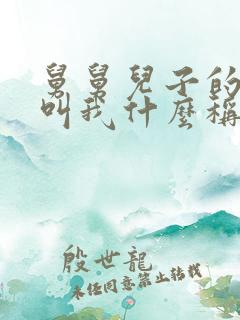 舅舅兒子的
叫我什麼稱
殷世龍
未任同意禁止转载